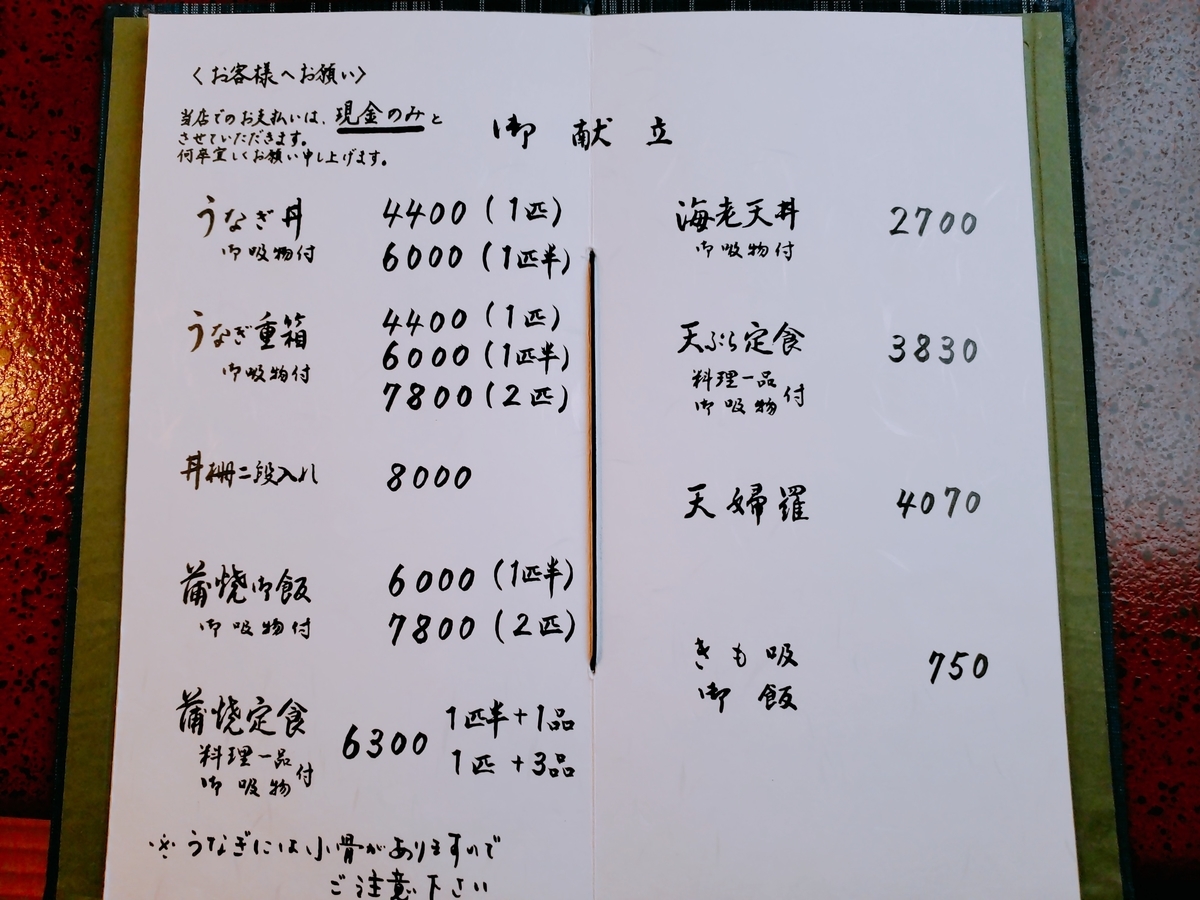 〈お客様へお願い〉
当店でのお支払いは、現金のみと
させていただきます。
何卒宜しくお願い申し上げます。
御献立
うなぎ丼 4400（1匹）
御吸物付 6000（1匹半）
うなぎ重箱 4400（1匹）
御吸物付 6000（1匹半）
7800（2匹）
丼柵二段入れ 8000
蒲焼御飯 6000（1匹半）
御吸物付 7800（2匹）
蒲焼定食 6300 1匹半+1品
料理一品 1匹+3品
御吸物付
※うなぎには小骨がありますので
ご注意下さい
海老天丼 2700
御吸物付
天ぷら定食 3830
料理一品
御吸物付
天婦羅 4070
きも吸 750
御飯